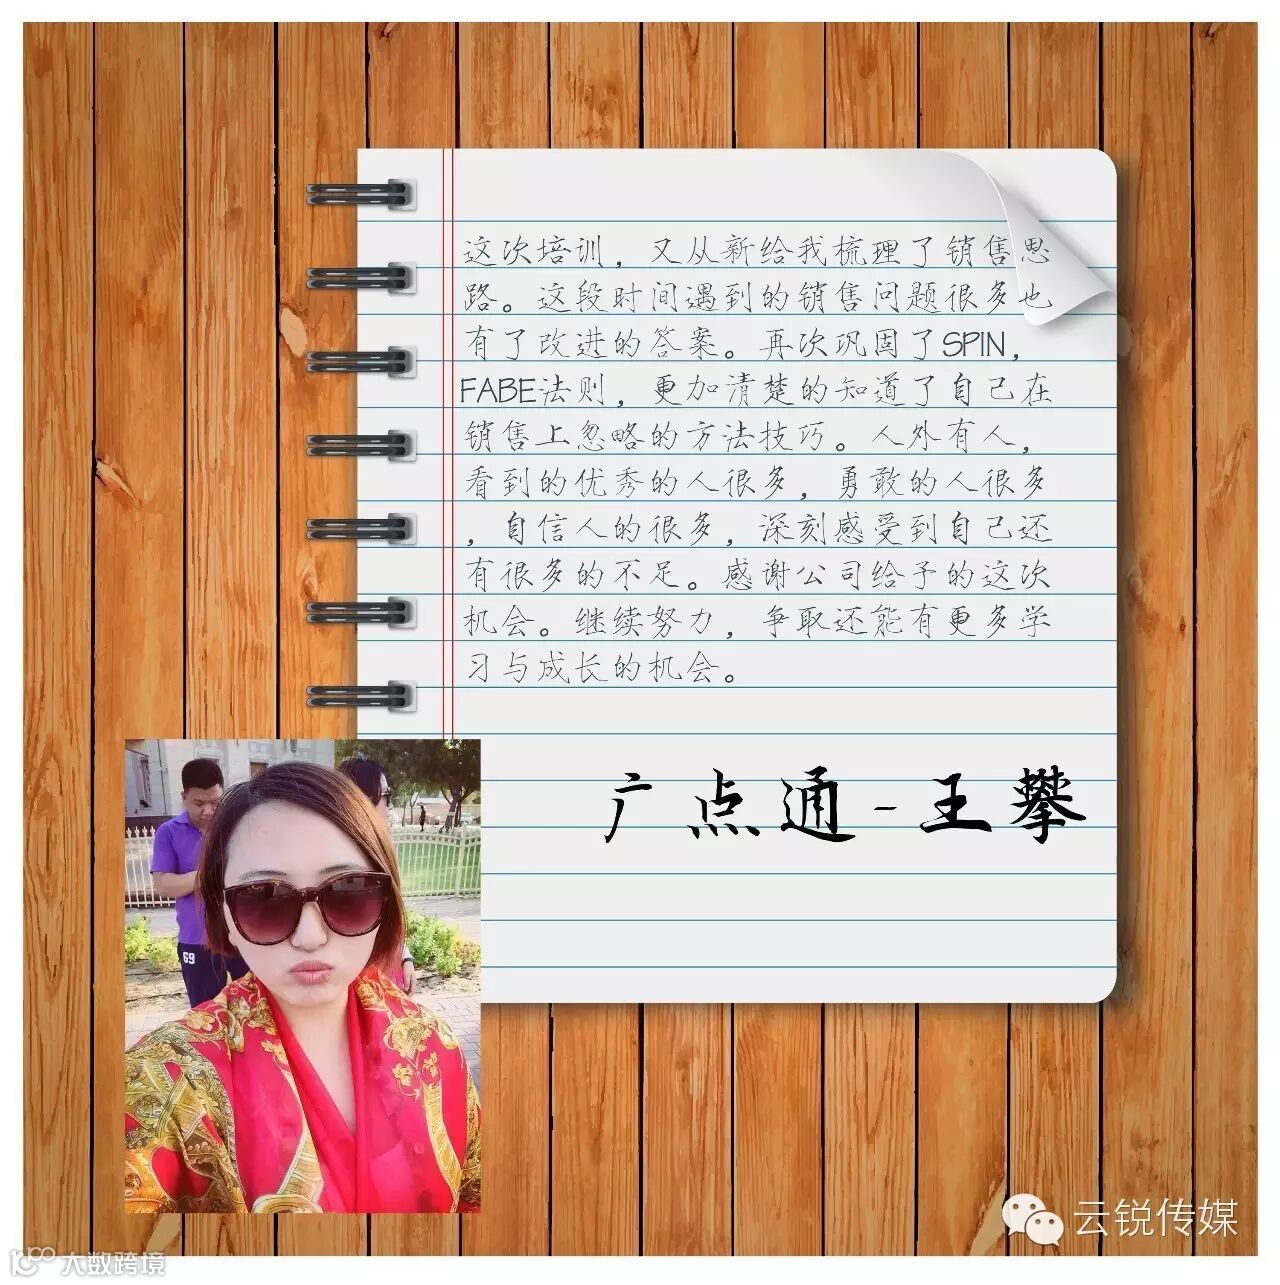 这次培训，又从新给我梳理了销售思
路。这段时间遇到的销售问题很多也
有了改进的答案。再次巩固了SPIN，
FABE法则，更加清楚的知道了自己在
销售上忽略的方法技巧。人外有人，
看到的优秀的人很多，勇敢的人很多
，自信人的很多，深刻感受到自己还
有很多的不足。感谢公司给予的这次
机会。继续努力，争取还能有更多学
习与成长的机会。
广点通-王攀
69
云锐传媒
大数跨境